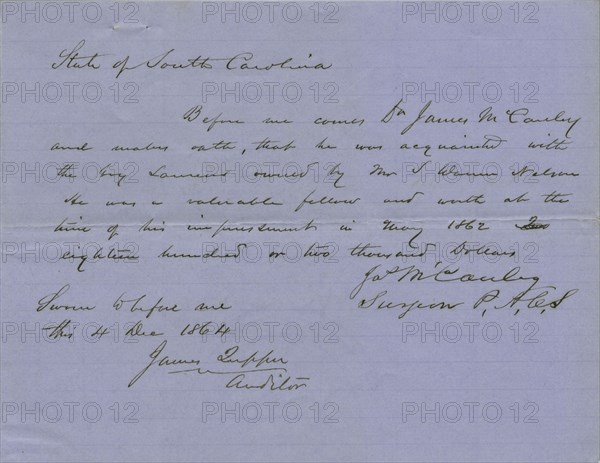 State of South Carolina
Before me comes Dr James McCauley
and makes oath, that he was acquainted with
the boy owned by Mr S Warren Nelson
He was a valuable fellow and worth at the
time of his impressment in May 1862
eighteen hundred or two thousand Dollars
Jas McCauley
Surgeon P. A. C. S
Sworn to before me
this 4 Dec 1864
James Tupper
Auditor